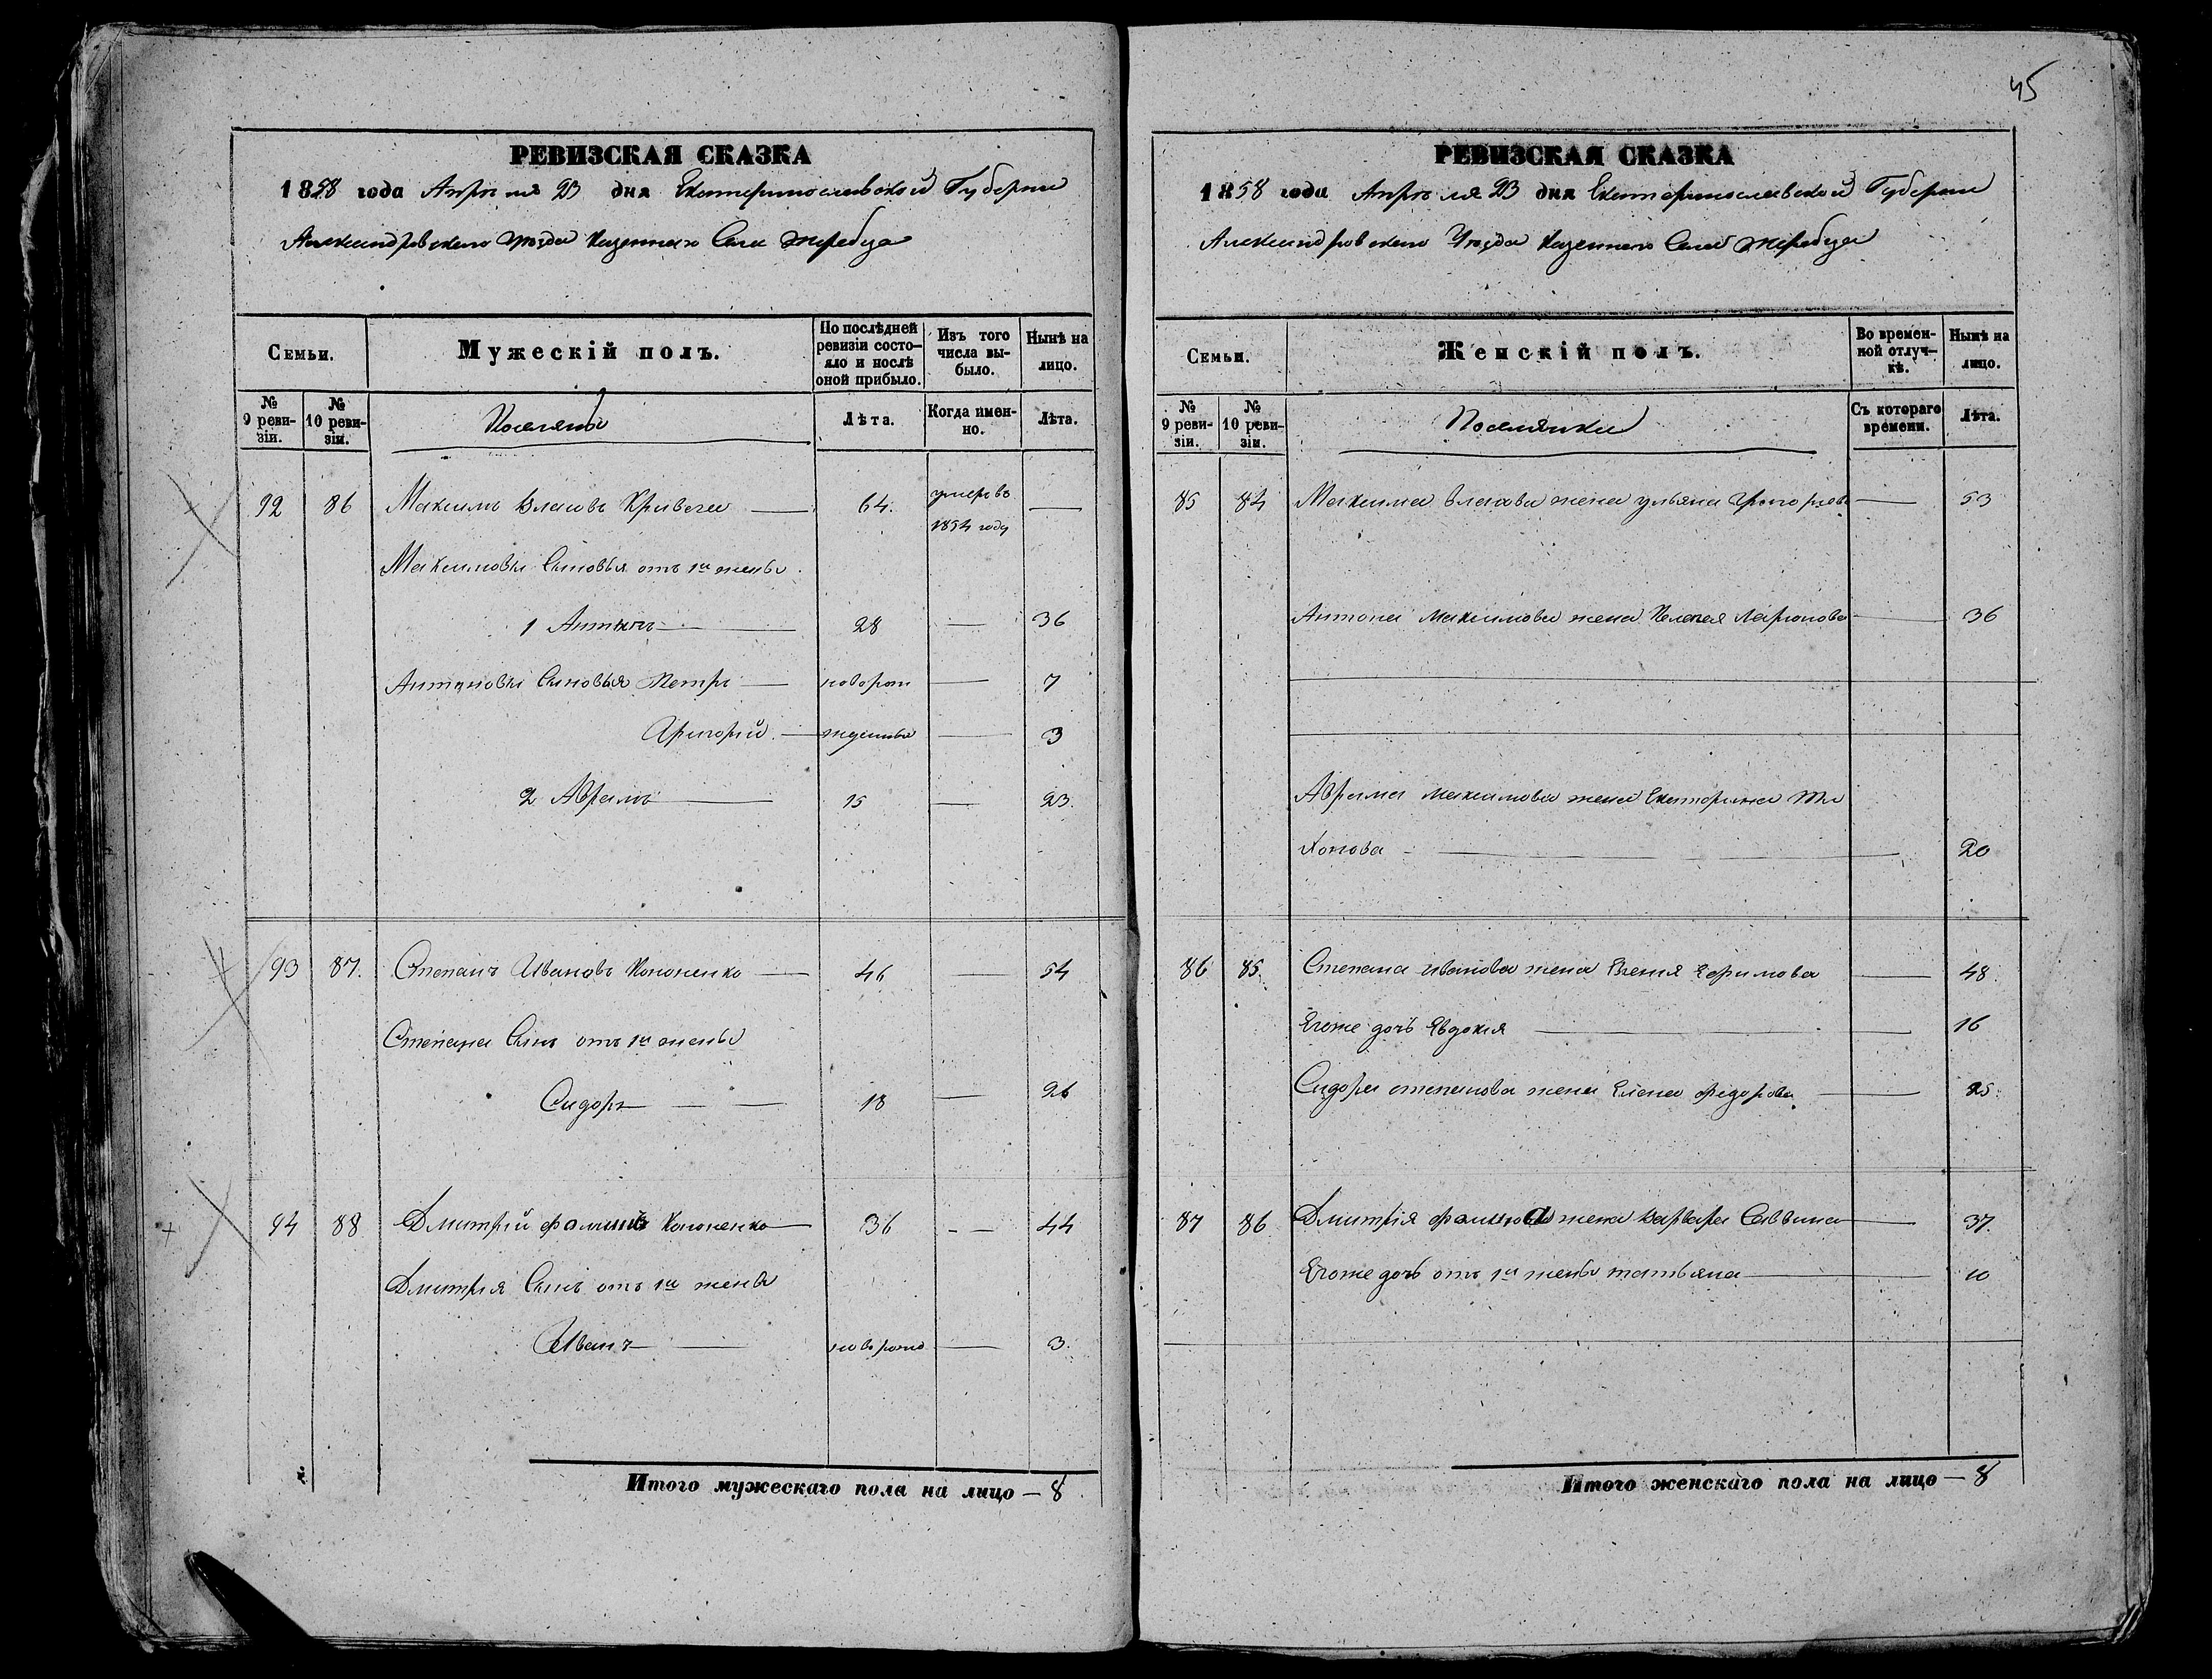 45
РЕВИЗСКАЯ СКАЗКА
1858 года Апрѣля 23 дня Екатеринославской Губернии
Александровскаго Уѣзда Казеннаго Села Жеребца
Семьи.
Мужескій полъ.
По послѣдней ревизіи состо-
яло и послѣ оной прибыло.
Изъ того числа вы-
было.
Нынѣ на лицо.
№ 9 реви-
зіи.
№ 10 реви-
зіи.
Поселяны
Лѣта.
Когда имен-
но.
Лѣта.
92 86 Максимъ Власовъ Кривега — 64. умеръ въ 1854 году —
Максимовы Сыновья отъ 1й жены
1 Антонъ — 28 — 36
Антоновы Сыновья Петръ — новорож — 7
Григорий — жденные — 3
2 Абрамъ — 15 — 23.
93 87. Степанъ Ивановъ Кононенко — 46 — 54
Степана Сынъ отъ 1й жены
Сидоръ — — 18 — 26
94 88 Дмитрій Фоминъ Кононенко — 36 - — 44
Дмитрія Сынъ отъ 1й жены
Иванъ — — новорожд — 3.
Итого мужескаго пола на лицо — 8
РЕВИЗСКАЯ СКАЗКА
1858 года Апрѣля 23 дня Екатеринославской Губернии
Александровскаго Уѣзда Казеннаго Села Жеребца
Семьи.
Женскій полъ.
Во времен-
ной отлуч-
кѣ.
Нынѣ на лицо.
№ 9 реви-
зіи.
№ 10 реви-
зіи.
Поселянки
Съ котораго времени.
Лѣта.
85 84 Максима Власова жена Ульяна Григорьев — 53
Антона Максимова жена Пелагея Ларионова — 36
Абрама Максимова жена Екатерина Ти
хонова - — — 20
86 85. Степана Иванова жена Ефимова — 48.
Егоже дочь Евдокия — 16
Сидора степанова жена Елена Федорова — 25.
87 86 Дмитрія Фомина жена Варвара Саввина — 37.
Егоже дочь отъ 1й жены татьяна — 10
Итого женскаго пола на лицо — 8